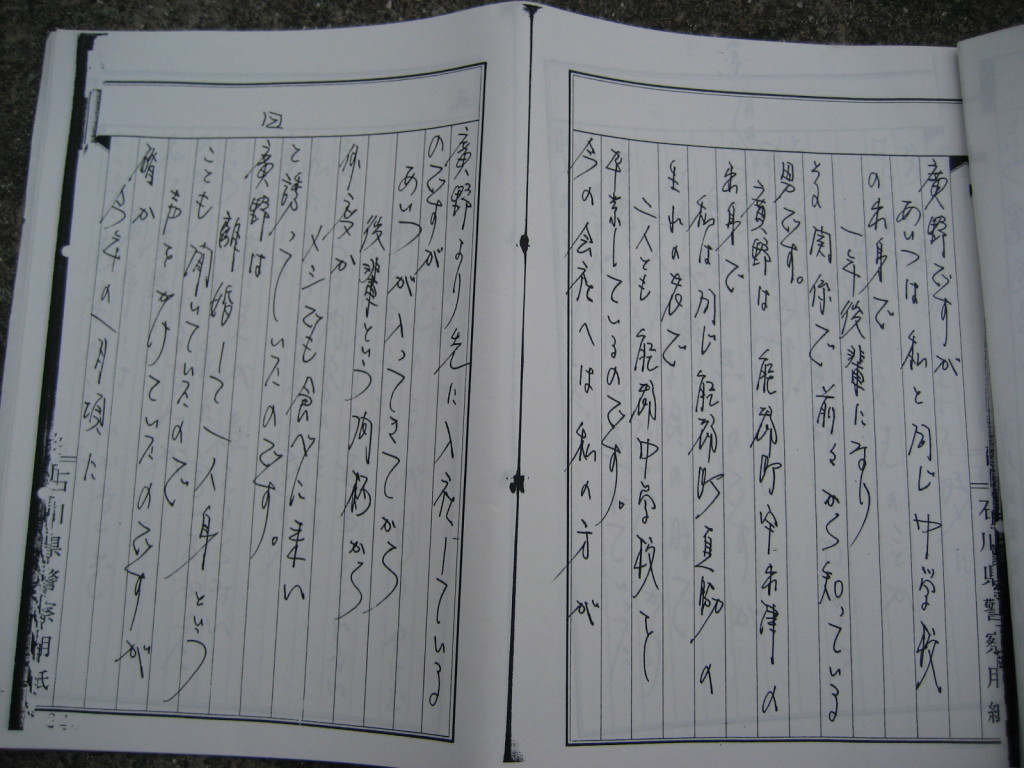 廣野ですが
あいつは私と同じ中学校
の出身で
一年後輩になり
関係で前々から知っている
男です。
廣野は 能都町 の
出身で
私は同じ能都町 の
生れの者で
二人とも能都中学校を
卒業しているのです。
今の会社へは私の方が
石川県警察用紙
廣野より先に入社している
のですが
あいつが入ってきてから
後輩という関係から
何度か
メシでも食べに来い
と誘っていたのです。
廣野は
離婚して一人身という
ことも聞いていたので
声をかけていたのですが
確か
今年の一月頃に
石川県警察用紙